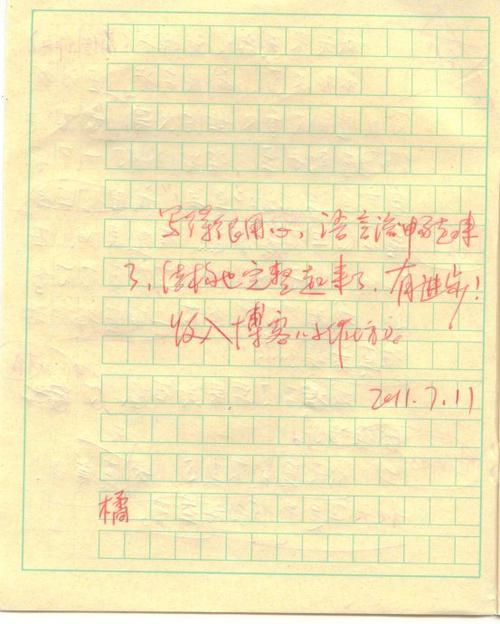 写得很用心,语言流畅起来
了,结构也完整起来了,有进步!
收入博客小作坊。
2011.7.11
橘